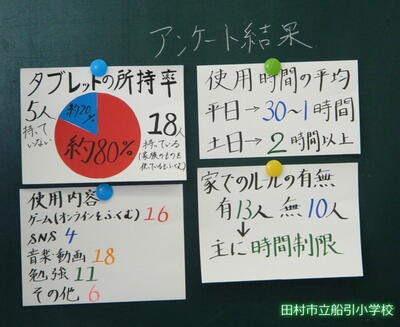 アンケート結果
タブレットの所持率
5人
持って
いない
約20%
約80%
18人
持っている
(家族のものを
使っているもふくむ)
使用時間の平均
平日→30~1時間
土日→2時間以上
使用内容
ゲーム(オンラインをふくむ)16
SNS 4
音楽・動画 18
勉強 11
その他 6
家でのルールの有無
有13人 無10人
↓
→主に時間制限
田村市立船引小学校